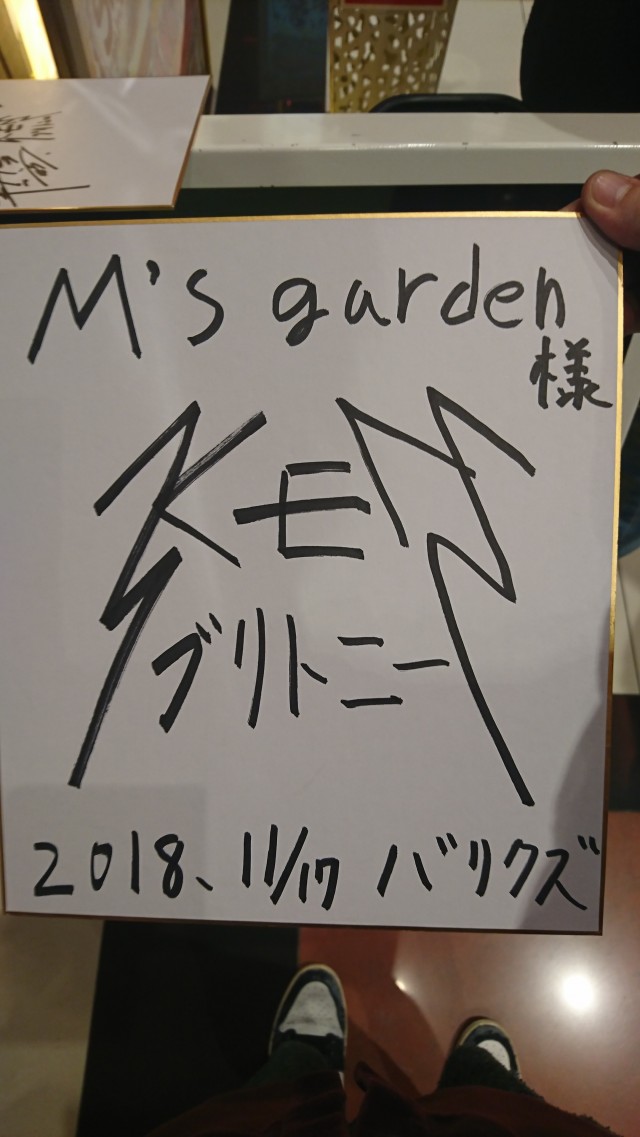 M's garden
様
KEN
ブリトニー
2018、11/17 バリクズ